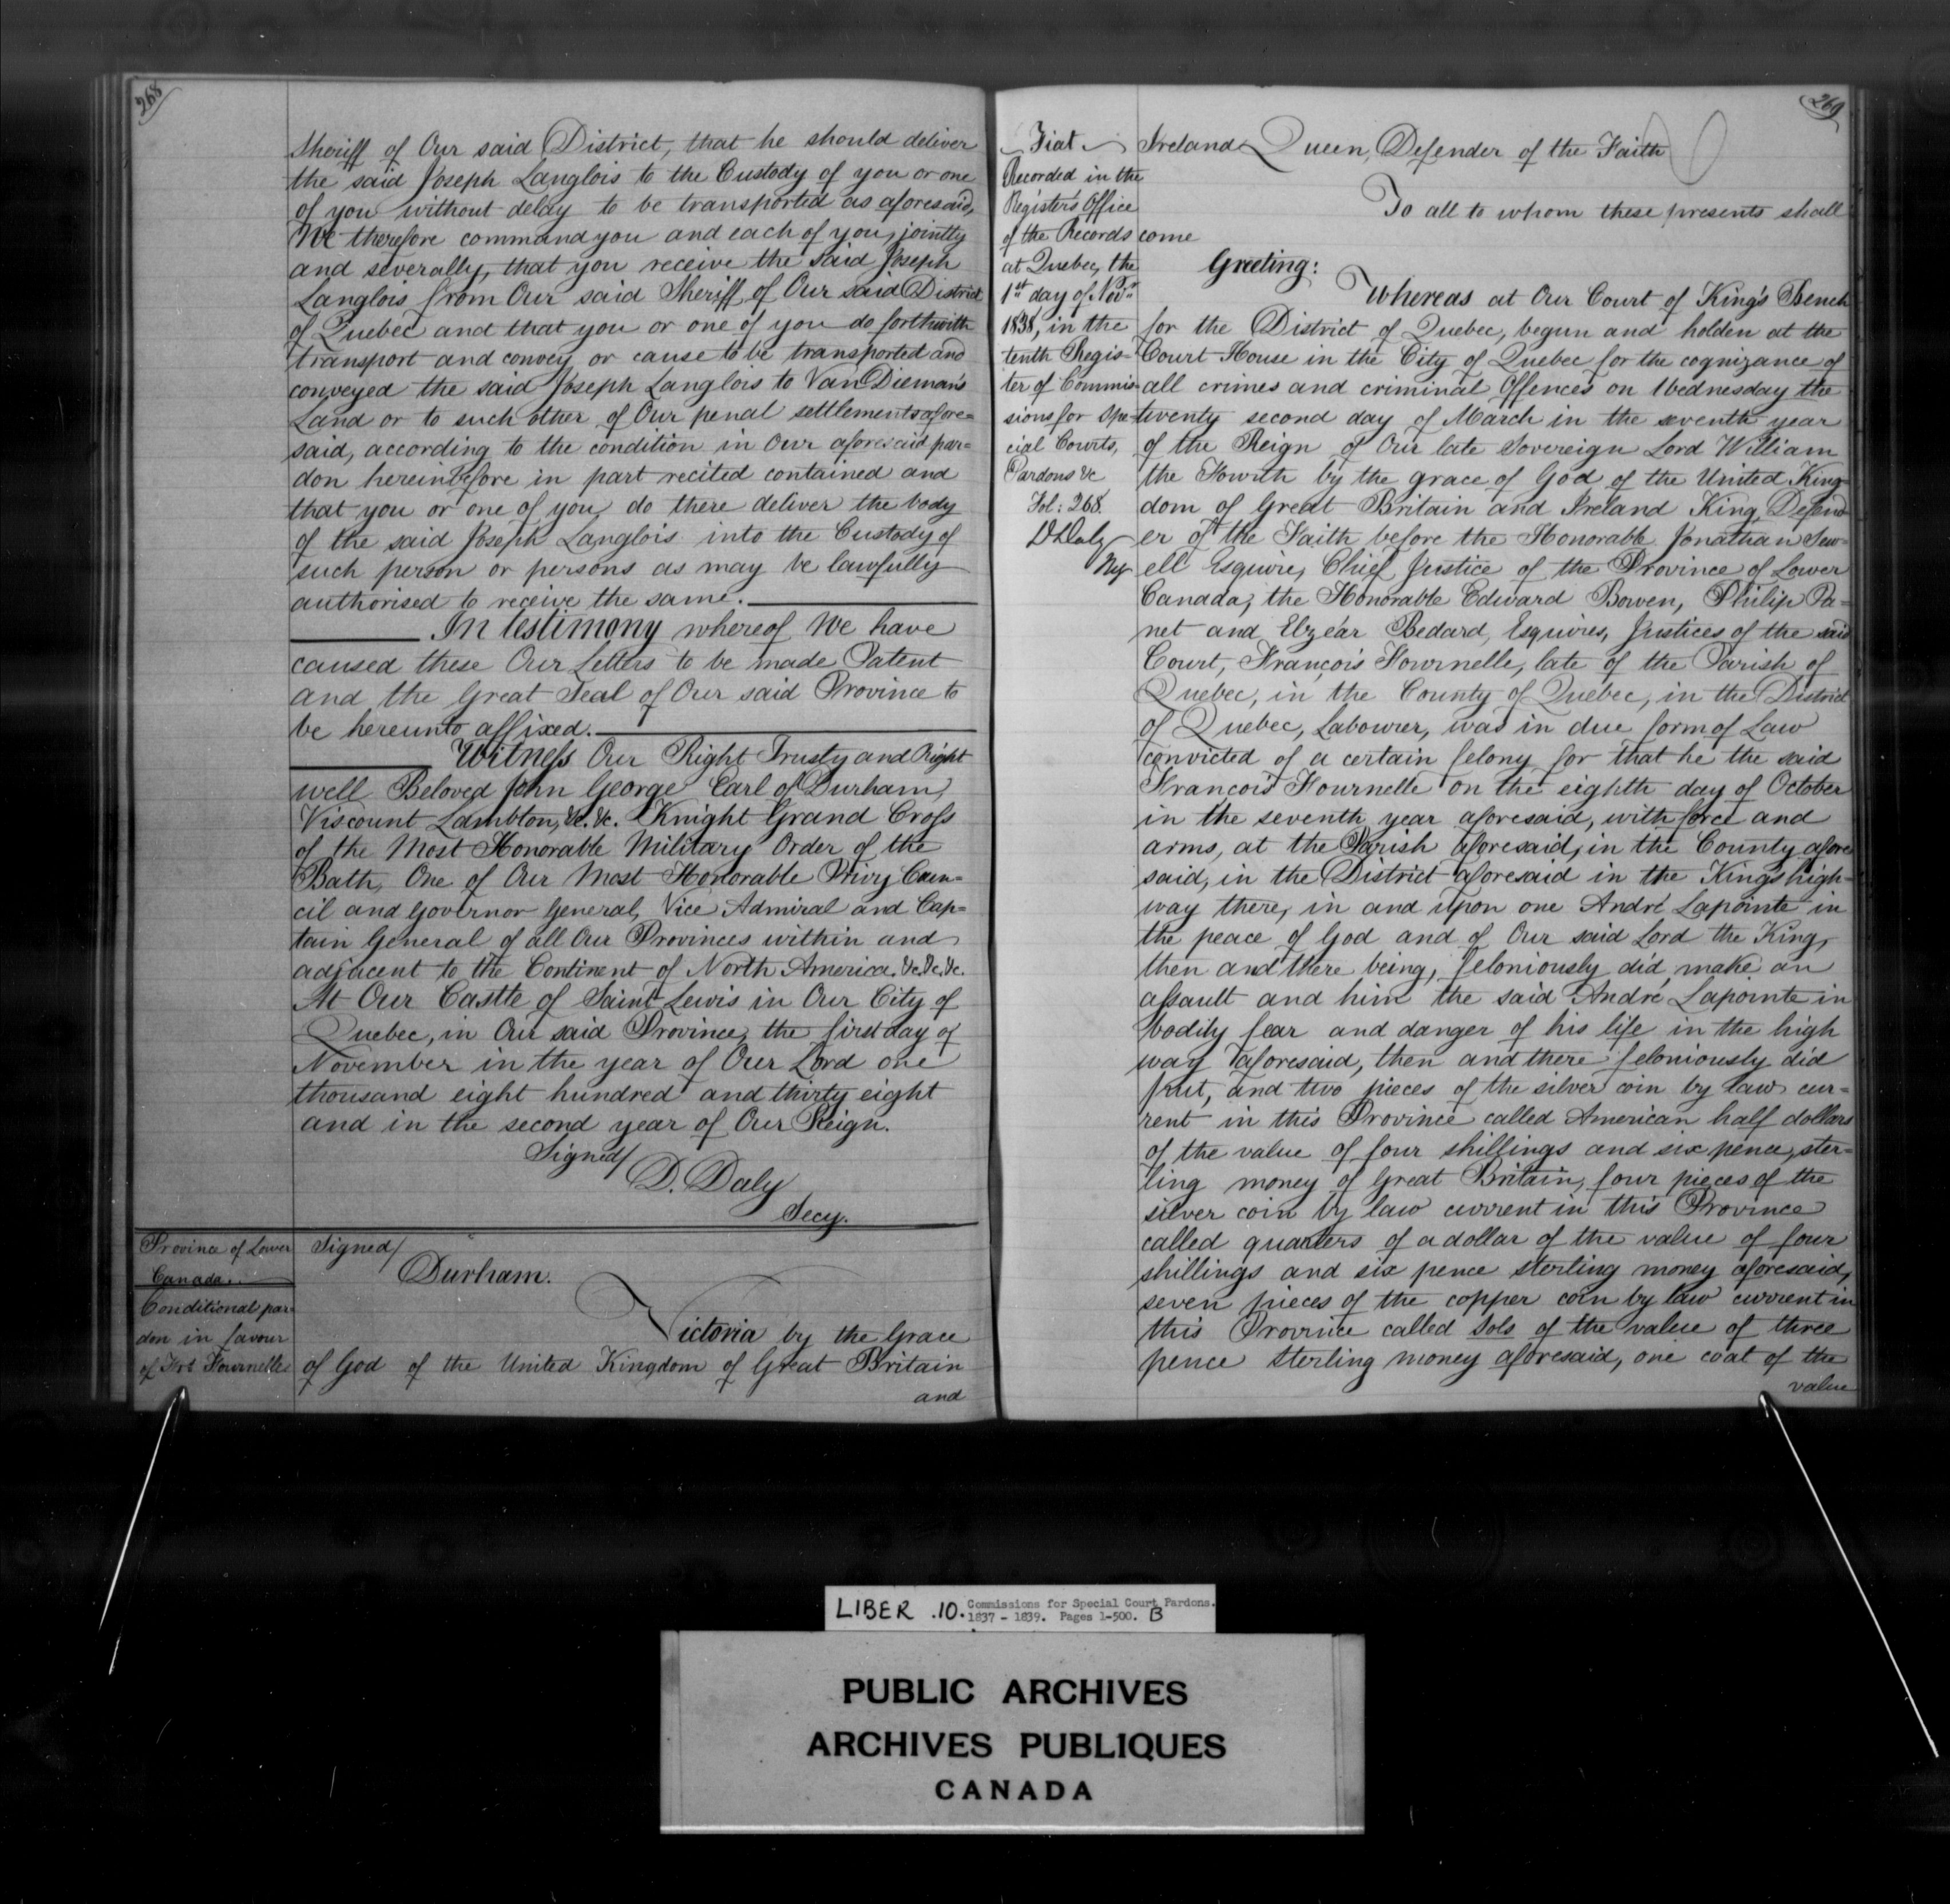 268
Sheriff of Our said District, that he should deliver
the said Joseph Langlois to the Custody of you or one
of you without delay to be transported as aforesaid,
We therefore command you and each of you, jointly
and severally, that you receive the said Joseph
Langlois from Our said Sheriff of Our said District
of Quebec and that you or one of you do forthwith
transport and convey or cause to be transported and
conveyed the said Joseph Langlois to Van Dieman's
Land or to such other of Our penal settlements afore=
said, according to the condition in Our aforesaid par=
don hereinbefore in part recited contained and
that you or one of you, do there deliver the body
of the said Joseph Langlois into the Custody of
such person or persons as may be lawfully
authorised to receive the same.
In testimony whereof We have
caused these Our Letters to be made Patent
and the Great Seal of Our said Province to
be hereunto affixed.
Witness Our Right Trusty and Right
well Beloved John George Earl of Durham,
Viscount Lambton, &c. &c. Knight Grand Cross
of the Most Honorable Military Order of the
Bath, One of Our Most Honorable Privy Coun=
cil and Governor General, Vice Admiral and Cap=
tain General of all Our Provinces within and
adjacent to the Continent of North America, &c. &c. &c.
At Our Castle of Saint Lewis in Our City of
Quebec, in Our said Province, the first day of
November in the year of Our Lord one
thousand eight hundred and thirty eight
and in the second year of Our Reign.
Signed/
D. Daly
Secy.
Province of Lower
Canada.
Conditional par=
don in favour
of Frs Fournelle
Signed/
Durham.
Victoria by the Grace
of God of the United Kingdom of Great Britain
and
269
Fiat
Recorded in the
Register's Office
of the Records
at Quebec, the
1st day of Novr
1838, in the
tenth Regis=
ter of Commis=
sions for Spe=
cial Courts,
Pardons &c
Fol: 268.
D Daly
Reg
Ireland Queen, Defender of the Faith
To all to whom these presents shall
come
Greeting:
Whereas at Our Court of King's Bench
for the District of Quebec, begun and holden at the
Court House in the City of Quebec for the cognizance of
all crimes and criminal Offences on Wednesday the
twenty second day of March in the seventh year
of the Reign of Our late Sovereign Lord William
the Fourth by the grace of God of the United King=
dom of Great Britain and Ireland King, Defend=
er of the Faith before the Honorable Jonathan Sew=
ell Esquire, Chief Justice of the Province of Lower
Canada, the Honorable Edward Bowen, Philip Pa=
net and Elzéar Bedard, Esquires, Justices of the said
Court, François Fournelle, late of the Parish of
Quebec, in the County of Quebec, in the District
of Quebec, Labourer, was in due form of Law
convicted of a certain felony for that he the said
François Fournelle on the eighth day of October
in the seventh year aforesaid, with force and
arms, at the Parish aforesaid, in the County afore
said, in the District aforesaid in the Kings high=
way there, in and upon one André Lapointe in
the peace of God and of Our said Lord the King,
then and there being, feloniously did make an
assault and him the said André Lapointe in
bodily fear and danger of his life in the high
way aforesaid, then and there feloniously did
put, and two pieces of the silver coin by law cur=
rent in this Province called American half dollars
of the value of four shillings and six pence, ster=
ling money of Great Britain, four pieces of the
silver coin by law current in this Province
called quarters of a dollar of the value of four
shillings and six pence sterling money aforesaid,
seven pieces of the copper coin by law current in
this Province called Sols of the value of three
pence sterling money aforesaid, one coat of the
value
LIBER .10. Commissions for Special Court Pardons.
1837 - 1839. Pages 1-500. B
PUBLIC ARCHIVES
ARCHIVES PUBLIQUES
CANADA